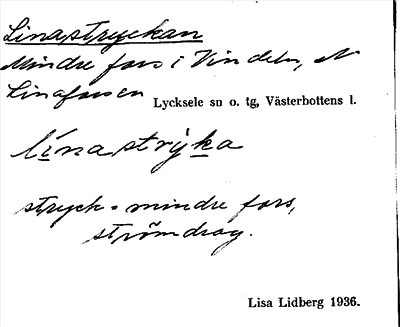 Linastryckan
Mindre fors i Vindeln, N
Linaforsen
Lycksele sn o. tg, Västerbottens l.
lìnastrýka
stryck = mindre fors,
strömdrag.
Lisa Lidberg 1936.